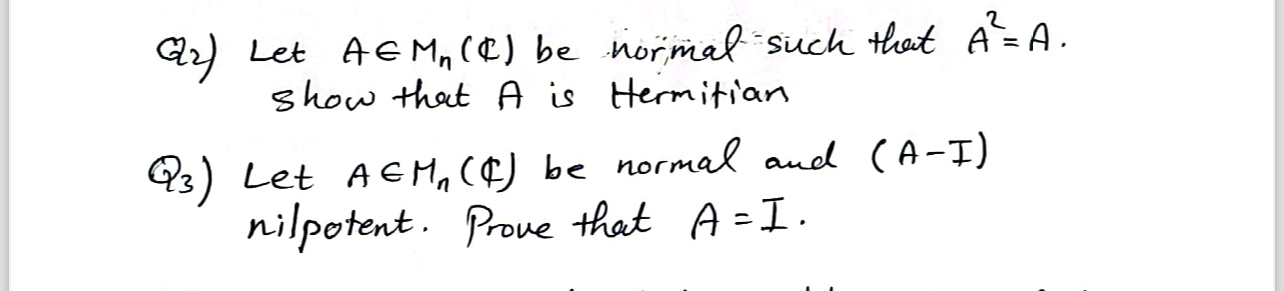 Q2) Let A ∈ Mn (ℂ) be normal such that A² = A.
show that A is Hermitian
Q3) Let A ∈ Mn (ℂ) be normal and (A-I)
nilpotent. Prove that A = I.